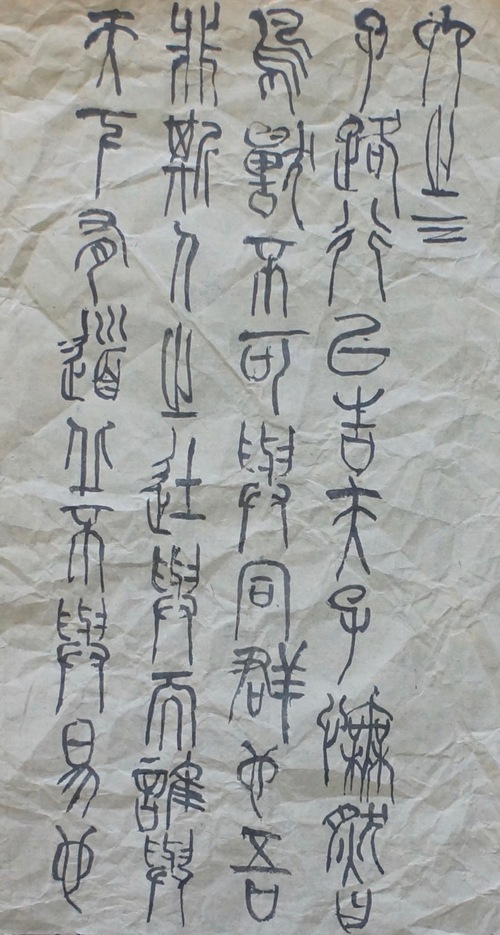 之三
子路行以告夫子憮然曰
鳥獸不可與同群也吾
非斯人之徒與而誰與
天下有道丘不與易也